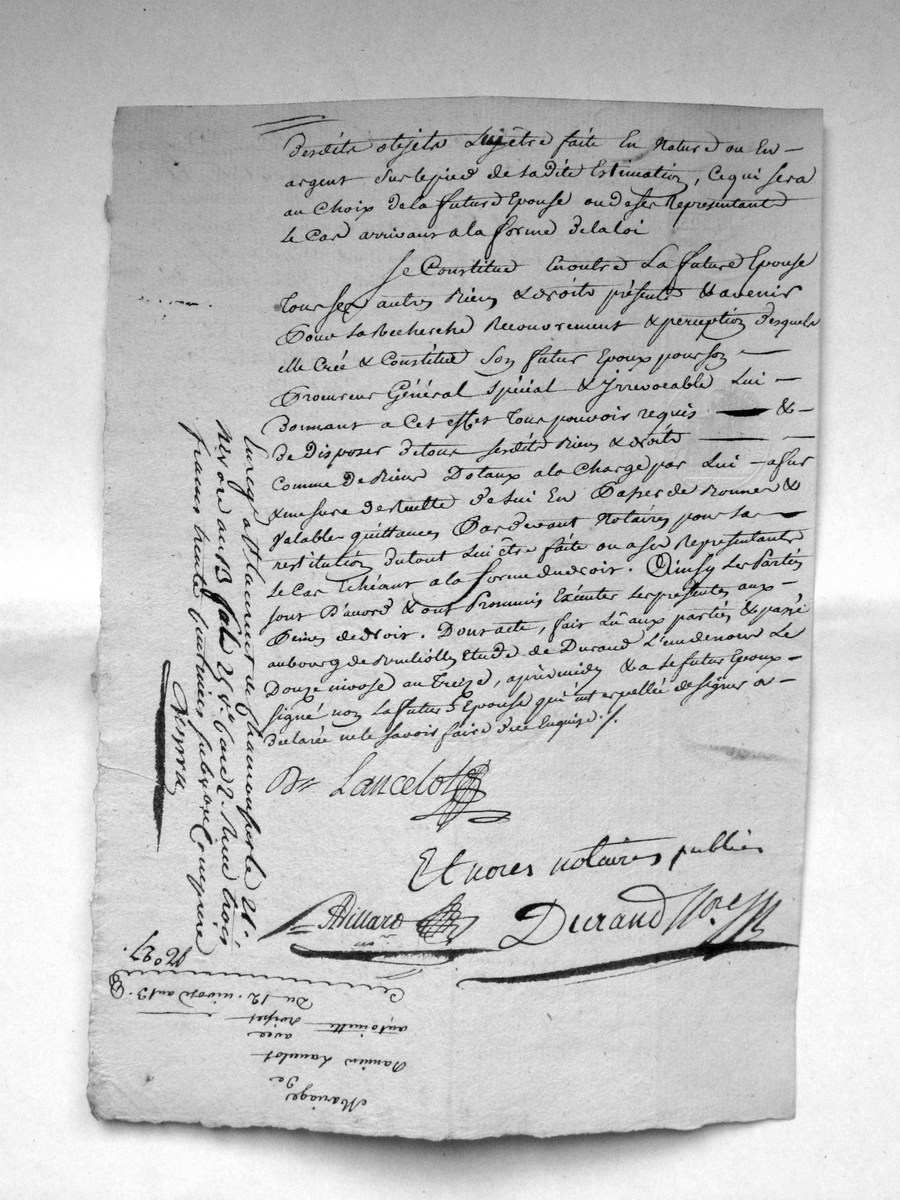 desdits objets lui être faite En Nature ou En —
argent sur le pied de sadite Estimation, ce qui sera
au Choix de la future Epouse ou de ses Representants
le Cas arrivant a la forme de la loi
Se Constitue Enoutre La future Epouse
tous ses autres Biens & droits présents & avenir
Pour la Recherche Recouvrement & perception desquels
elle Créé & Constitue Son futur Epoux pour son —
Procureur Général Spécial & Irrevocable Lui —
Donnant a Cet effet tous pouvoir requis — & —
De Disposer de tous sesdits Biens & droits —
Comme De Biens Dotaux a la Charge par Lui — a fur
& mesure de Recette d'elui En Passer de Bonnes &
Valables quittances Pardevant Notaires pour la —
restitution du tout lui être faite ou a ses Representants
le Cas échéant a la forme du droit. Ainsy les Parties
sont D'acord & ont Promis Exécuter les présentes aux —
Peines de droit. Dont acte, fait Lû aux parties & passé
au bourg de Etude de Durand L'un de nous Le
Douze nivose an Treize, après midy & a le futur Epoux —
signé non la future Epouse qui interpellée de signer a —
Déclarée ne le savoir faire de ce Enquise ./.
Bn Lancelot
Et nores notaires publics
Villard
Durand Nre
Enreg. à St Laurent de le 21
Nivose an 13 fol. 25 v.° Case 2. Reçu trois
francs trente Centimes subvon Comprise
N.° 27.
Du 12. nivose an 13.
antoinette
avec
Lancelot
De
Mariage